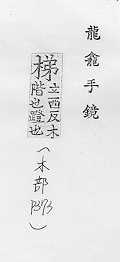 龍龕手鏡
梯
立西反木
階也蹬也
(木部P373)